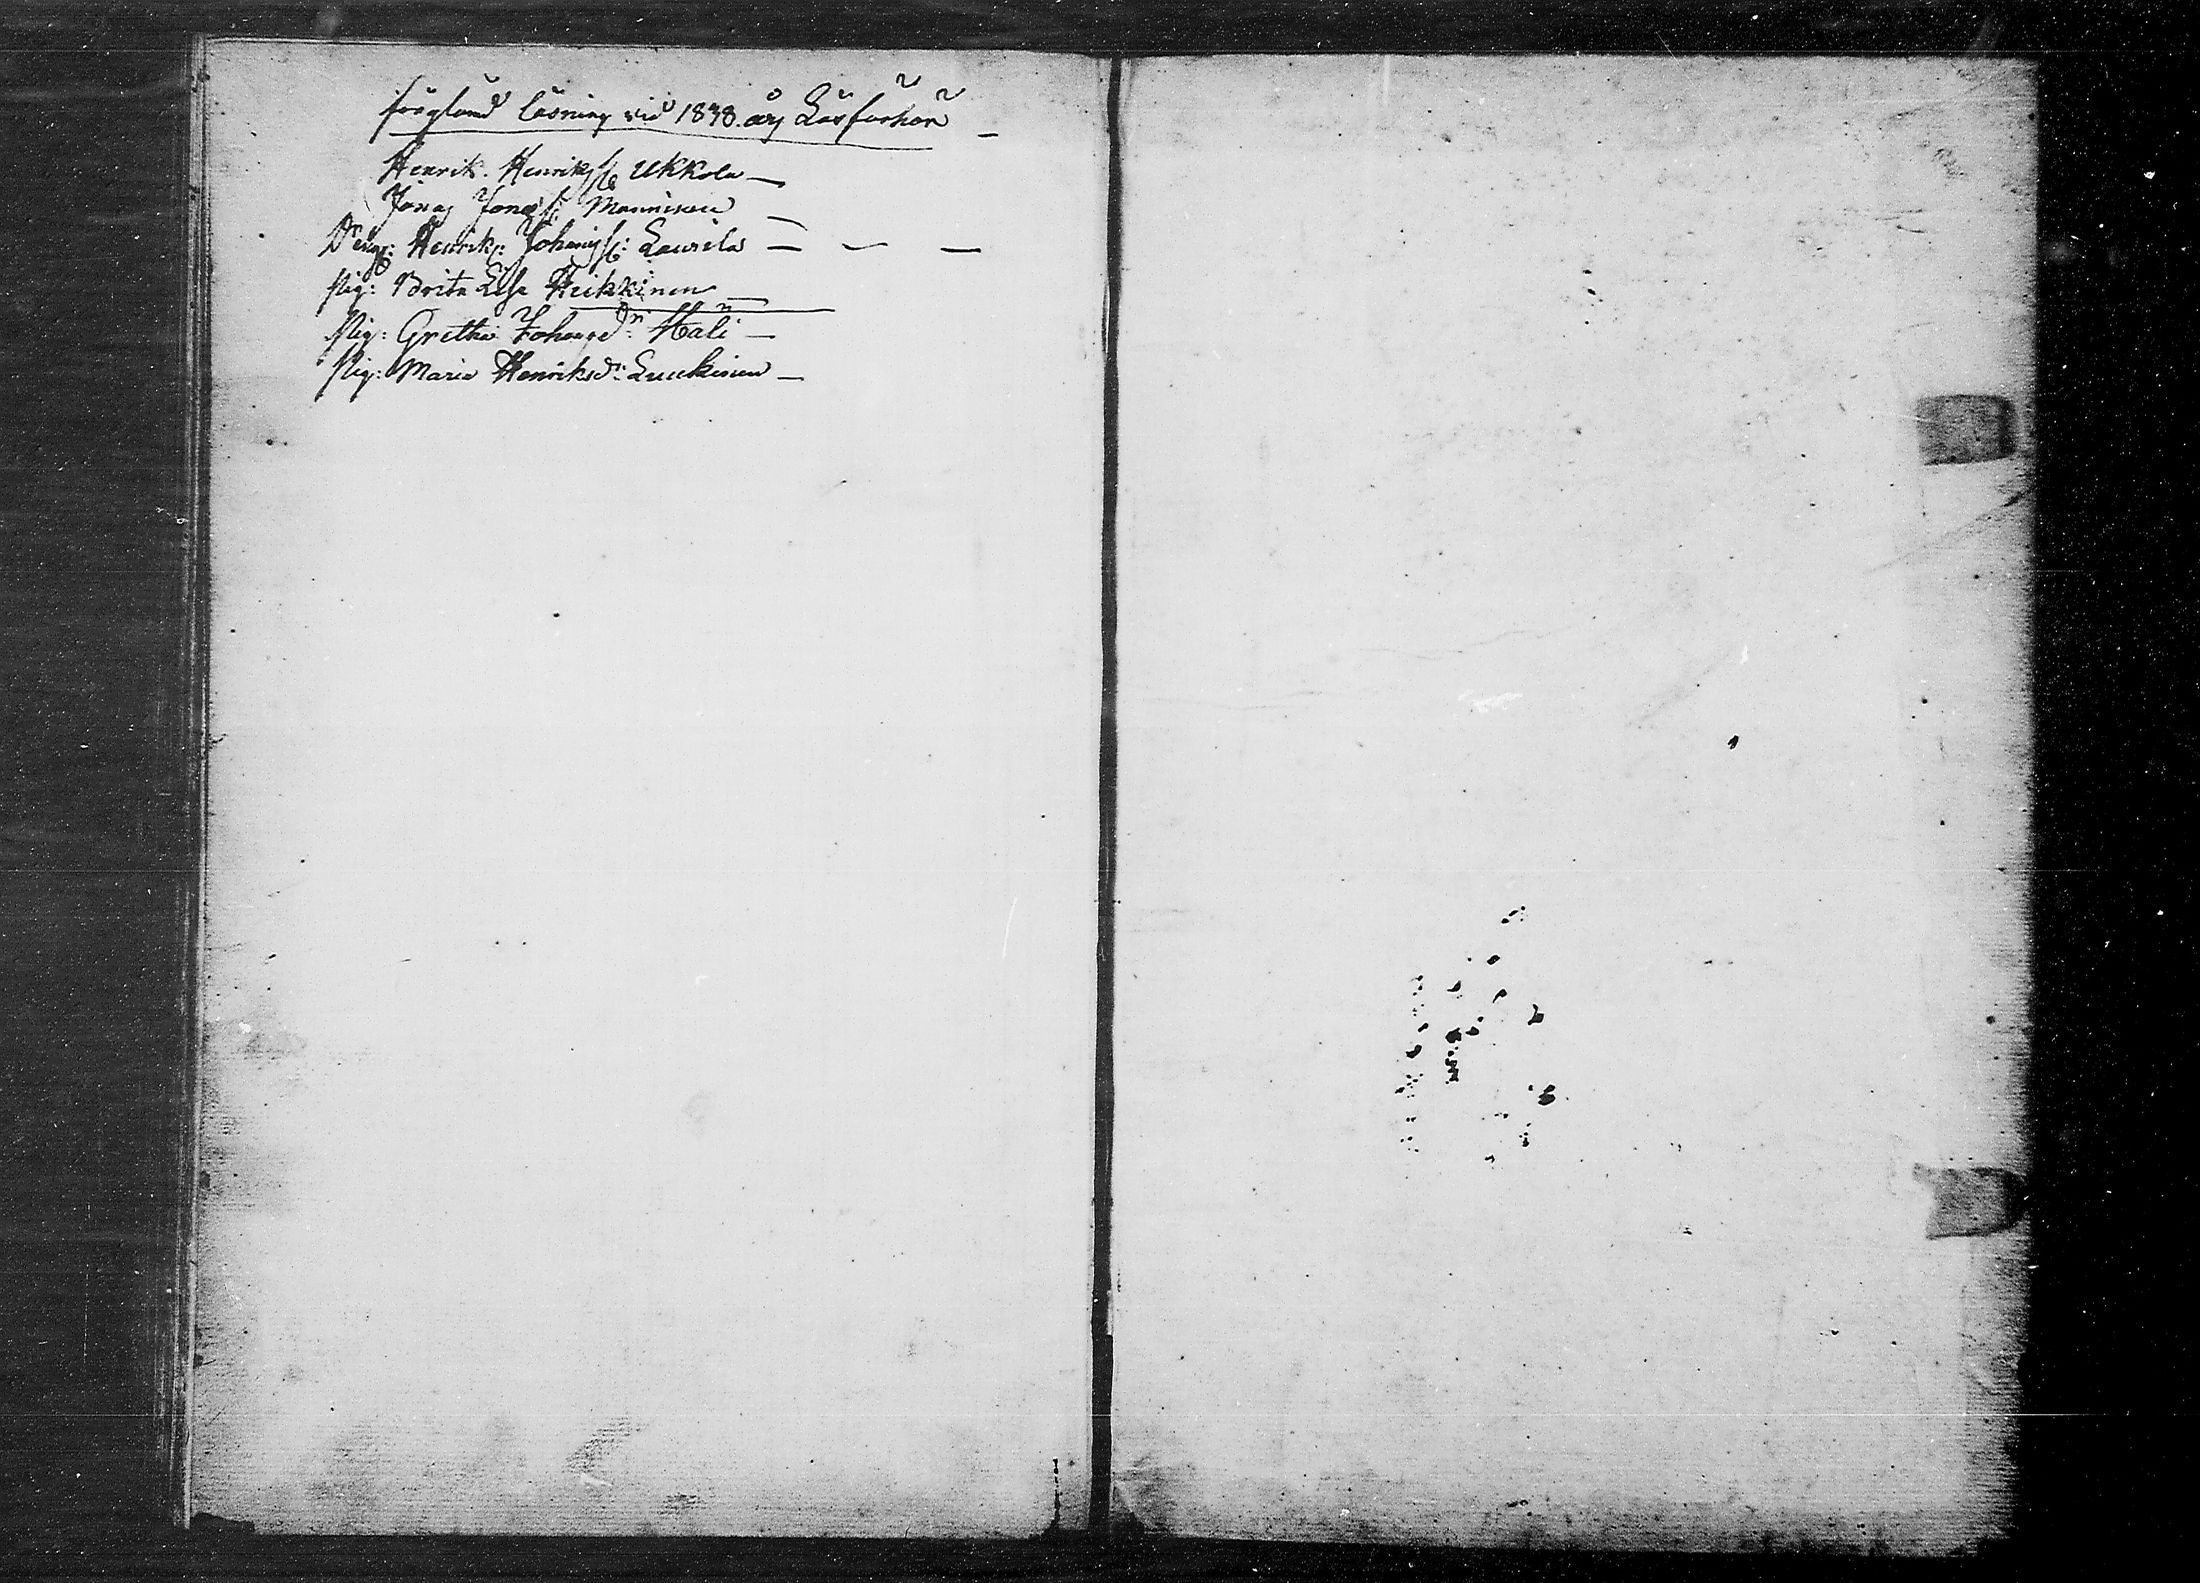 läsning vid 1838. års Läsförhör
Henrik. Henrikss: Ukkola —
Jonas Jonass: Manninen
Dräng: Henrik: Johanss: Laurila — — —
Pig: Brita Lisa Heikkinen —
Pig: Gretha Johansdr: Hali —
Pig: Maria Henriksdr: Luukinen —